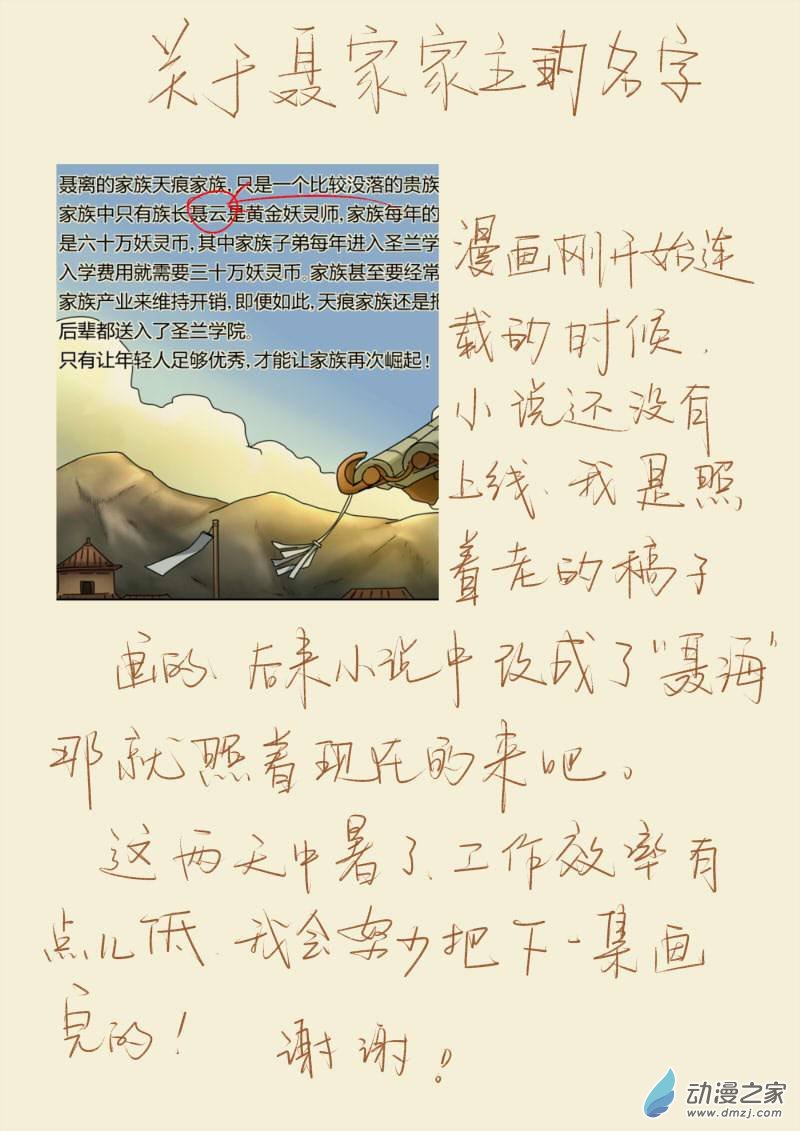 关于聂家家主的名字
聂离的家族天痕家族,只是一个比较没落的贵族
家族中只有族长聂云是黄金妖灵师,家族每年的
是六十万妖灵币,其中家族子弟每年进入圣兰学
入学费用就需要三十万妖灵币。家族甚至要经常
家族产业来维持开销,即便如此,天痕家族还是把
后辈都送入了圣兰学院。
只有让年轻人足够优秀,才能让家族再次崛起!
漫画刚开始连
载的时候、
小说还没有
上线、我是照
着老的稿子
画的、后来小说中改成了“聂海”
那就照着现在的来吧。
这两天中暑了、工作效率有
点儿低、我会努力把下一集画
完的!
谢谢!
动漫之家
www.dmzj.com